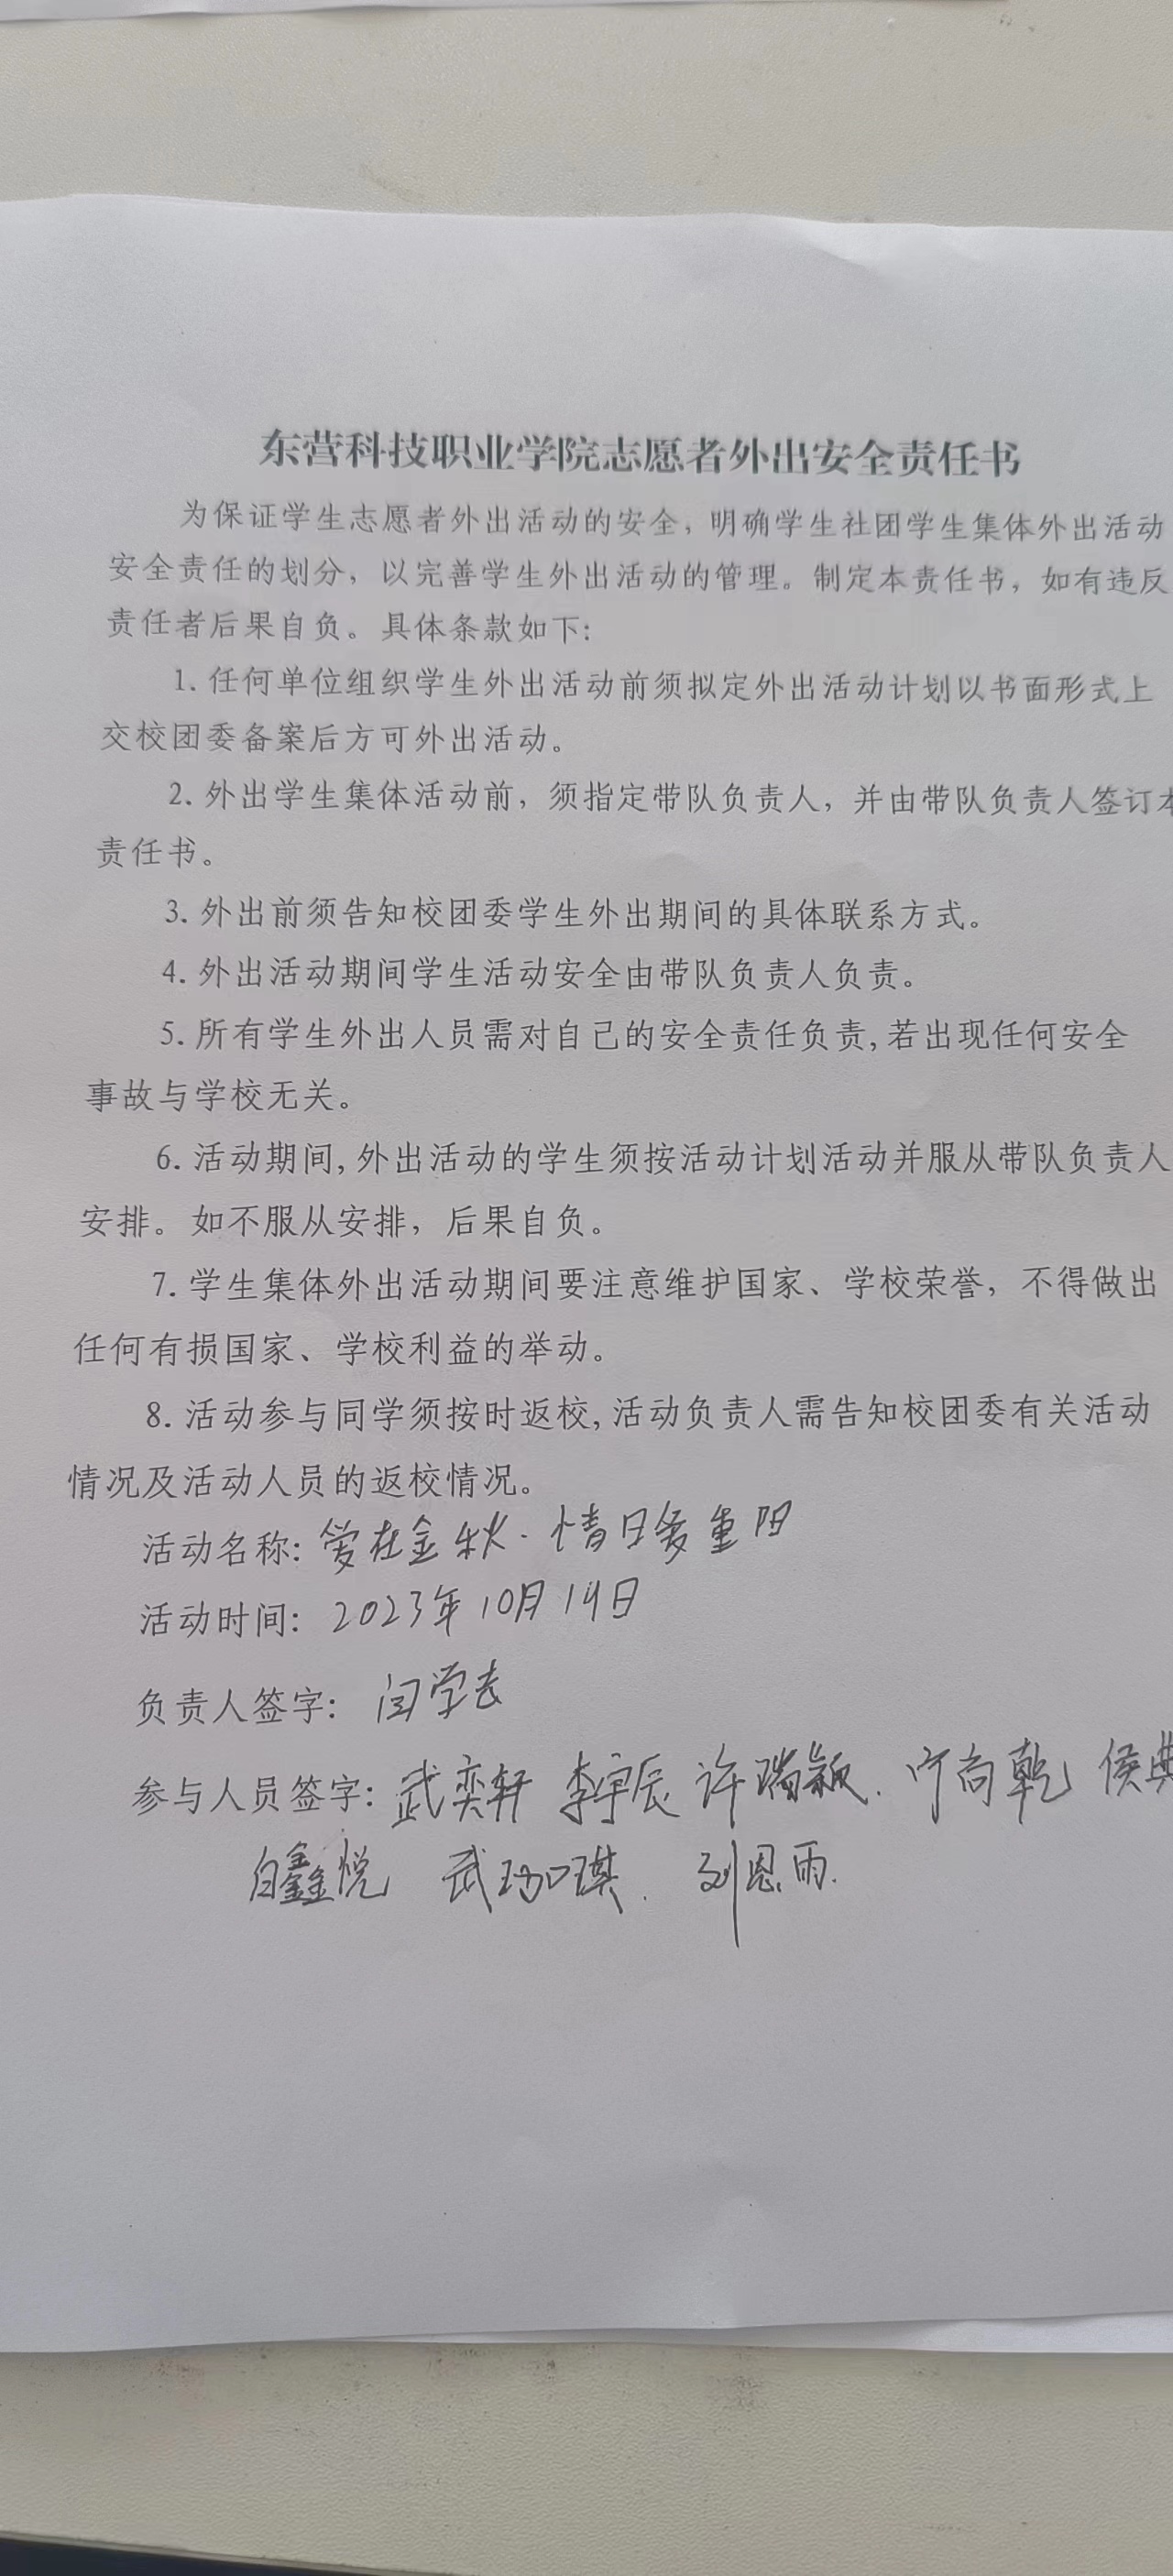 东营科技职业学院志愿者外出安全责任书
为保证学生志愿者外出活动的安全，明确学生社团学生集体外出活动
安全责任的划分，以完善学生外出活动的管理。制定本责任书，如有违反
责任者后果自负。具体条款如下：
1. 任何单位组织学生外出活动前须拟定外出活动计划以书面形式上
交校团委备案后方可外出活动。
2. 外出学生集体活动前，须指定带队负责人，并由带队负责人签订本
责任书。
3. 外出前须告知校团委学生外出期间的具体联系方式。
4. 外出活动期间学生活动安全由带队负责人负责。
5. 所有学生外出人员需对自己的安全责任负责,若出现任何安全
事故与学校无关。
6. 活动期间,外出活动的学生须按活动计划活动并服从带队负责人
安排。如不服从安排，后果自负。
7. 学生集体外出活动期间要注意维护国家、学校荣誉，不得做出
任何有损国家、学校利益的举动。
8. 活动参与同学须按时返校,活动负责人需告知校团委有关活动
情况及活动人员的返校情况。
活动名称: 爱在金秋·情日多重阳
活动时间: 2023年10月19日
负责人签字: 闫学
参与人员签字: 武奕轩 李宇辰 许瑞颖. 尚乾 侯典
白鑫悦 武珈琪. 刘恩雨.